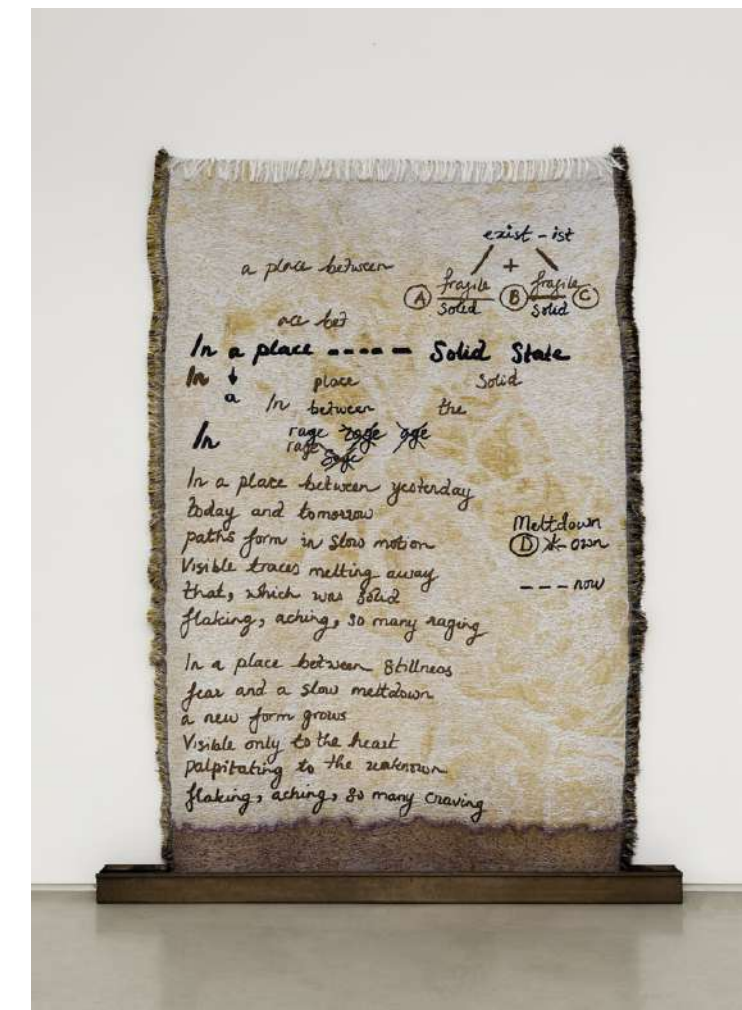 exist - ist
a place between
+
A fragile B fragile C
solid solid
ace bet
In a place ----- Solid State
In place Solid
a In between the
In rage rage age
rage Sage
In a place between yesterday
today and tomorrow
paths form in slow motion
Visible traces melting away
that, which was solid
flaking, aching, so many raging
Meltdown
D own
--- now
In a place between stillness
fear and a slow meltdown
a new form grows
Visible only to the heart
palpitating to the unknown
flaking, aching, so many craving